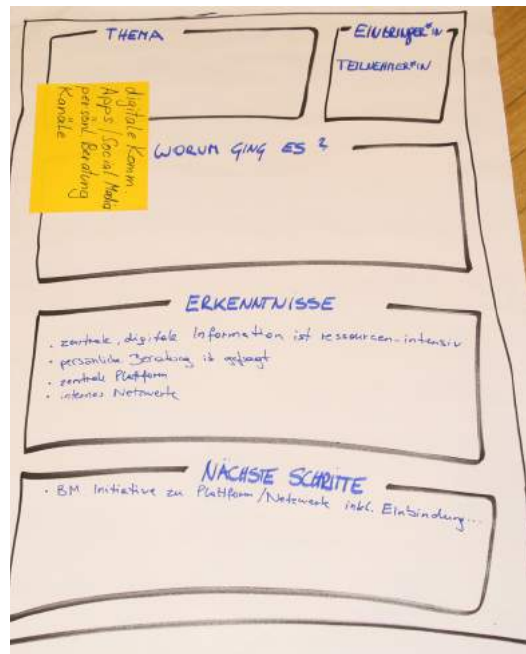 THEMA
EINBRINGER*IN
TEILNEHMER*IN
digitale Komm.
Apps/Social Media
persönl. Beratung
Kanäle
WORUM GING ES?
ERKENNTNISSE
· zentrale, digitale Information ist ressourcen-intensiv
· persönliche Beratung ist gefragt
· zentrale Plattform
· internes Netzwerke
NÄCHSTE SCHRITTE
· BM Initiative zu Plattform/Netzwerke inkl. Einbindung...